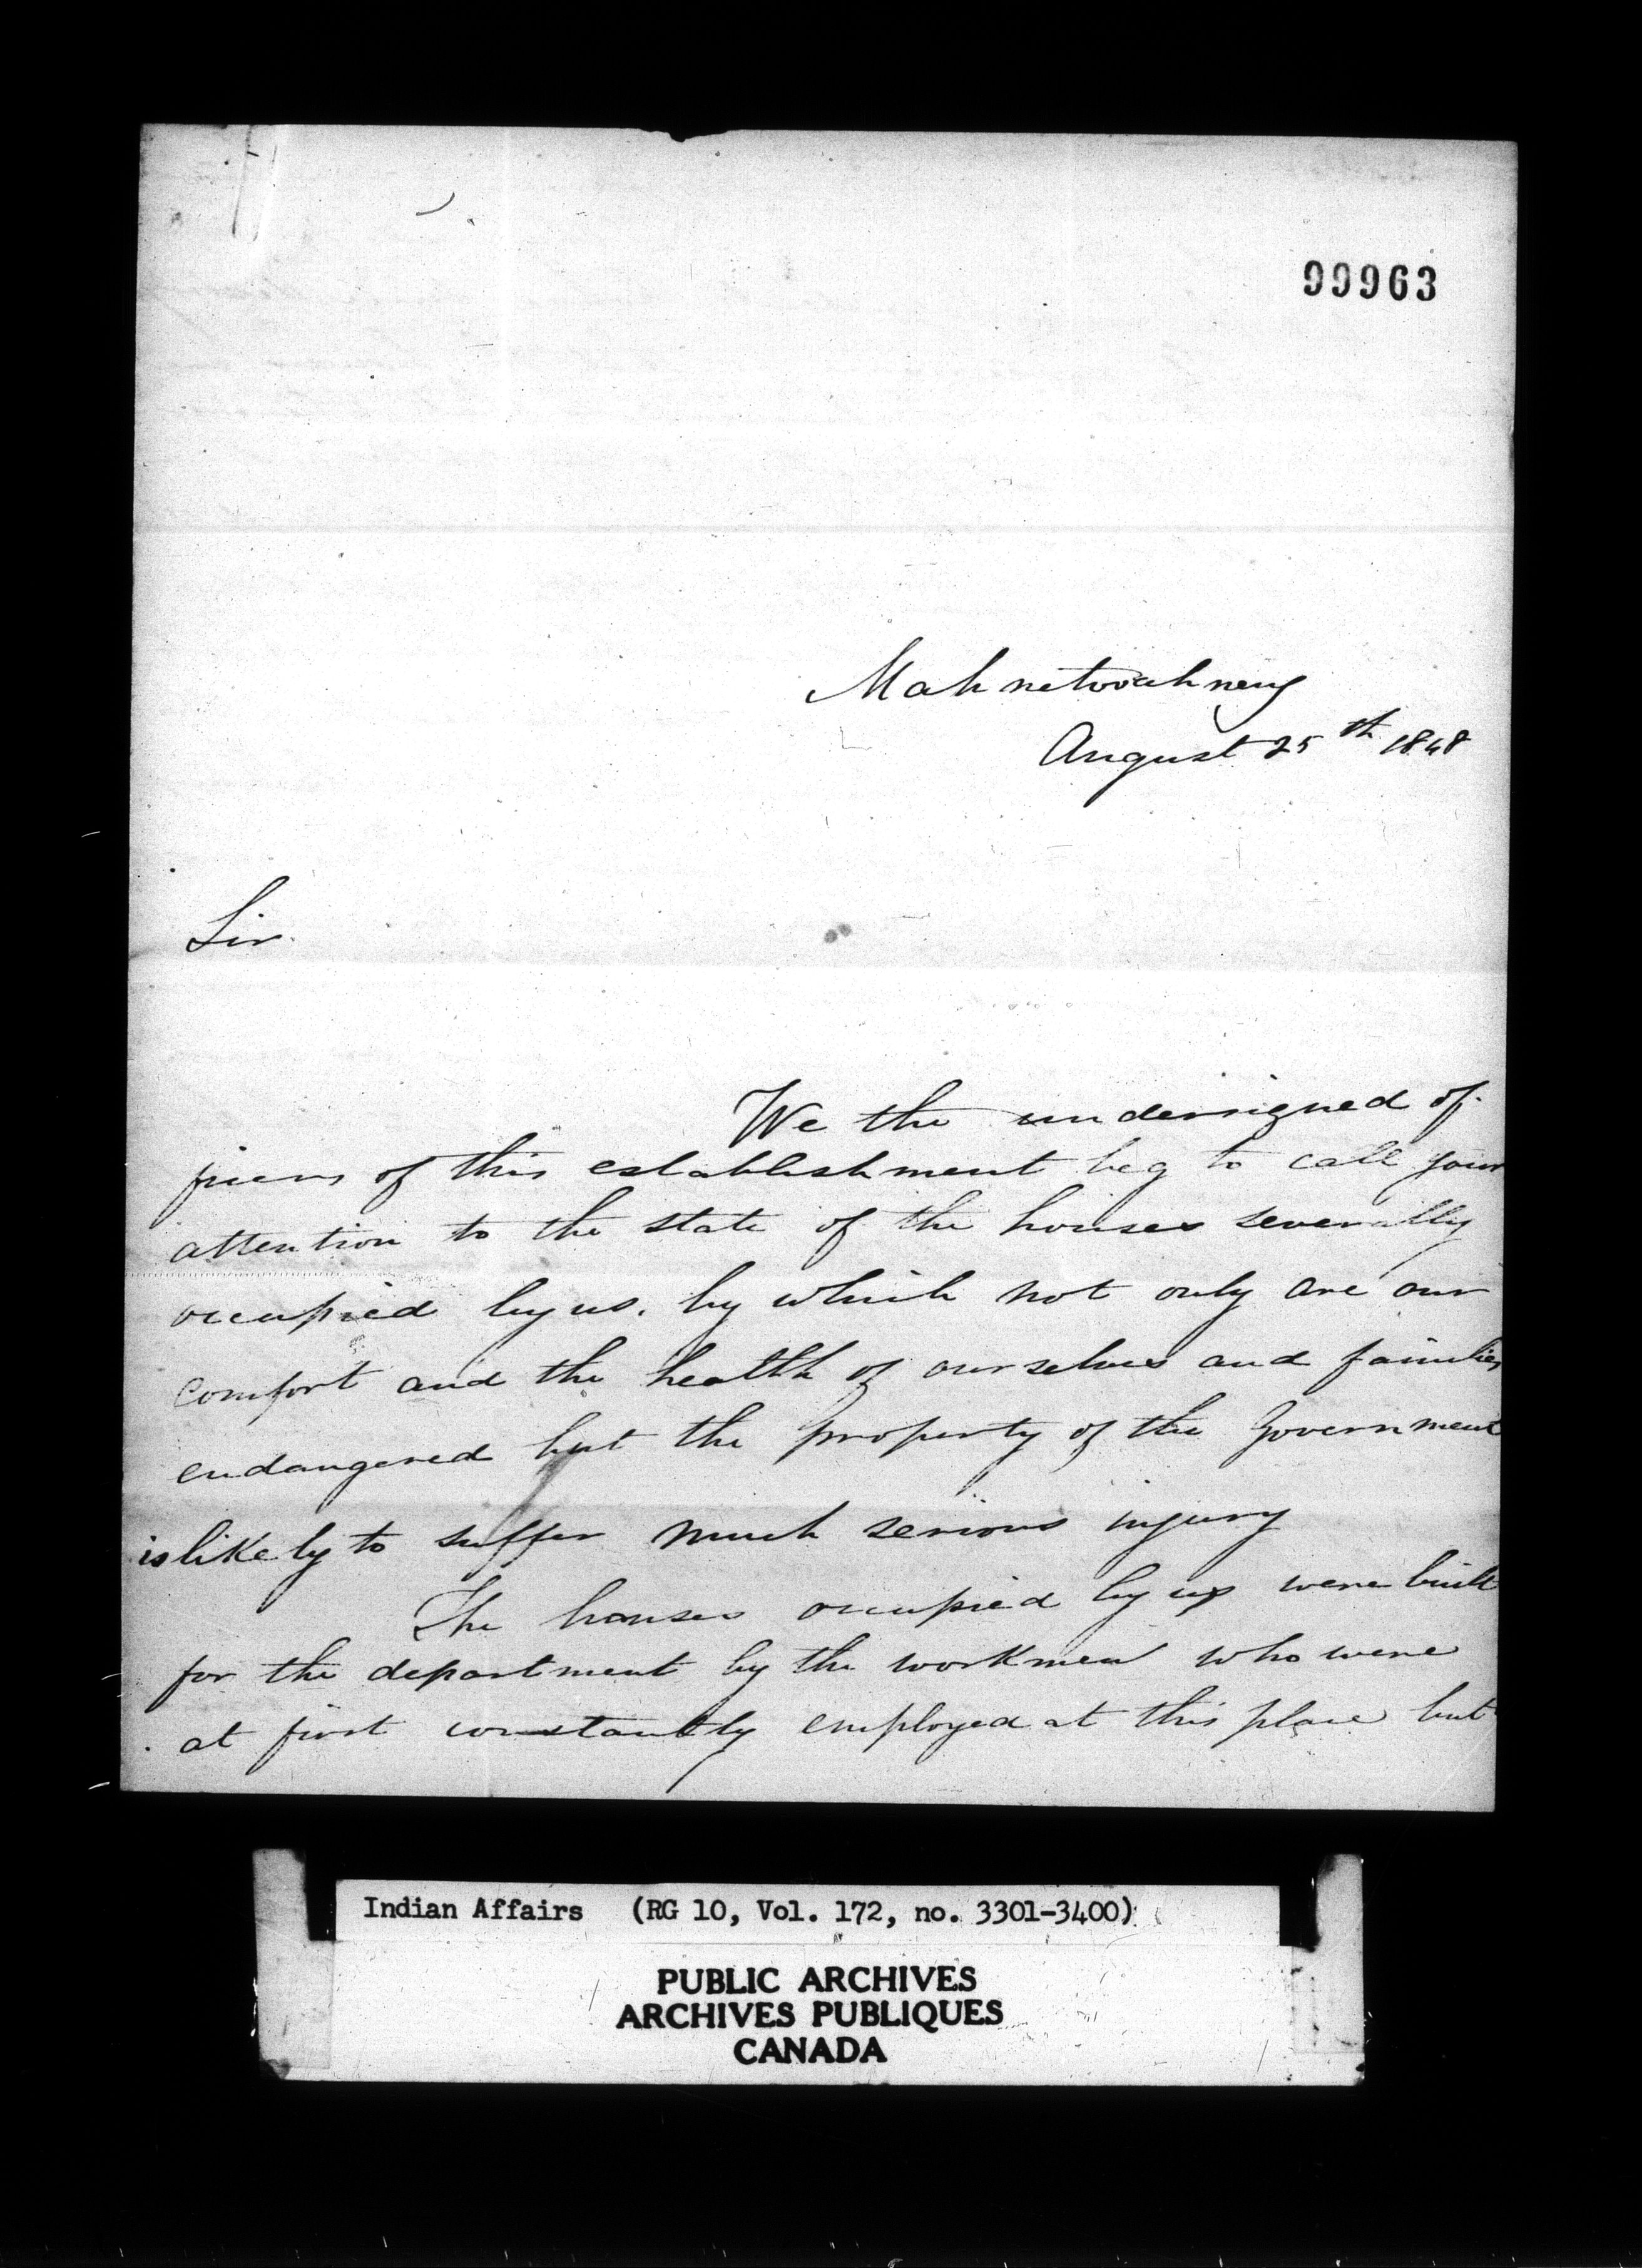 99963
Mahnetooahneng
August 25th 1848
Sir.
We the undersigned of-
ficers of this establishment beg to call your
attention to the state of the houses severally
occupied by us. by which not only are our
comfort and the health of ourselves and families
endangered but the property of the Government
is likely to suffer much serious injury
The houses occupied by us were built
for the department by the workmen who were
at first constantly employed at this place but
Indian Affairs (RG 10, Vol. 172, no. 3301-3400)
PUBLIC ARCHIVES
ARCHIVES PUBLIQUES
CANADA